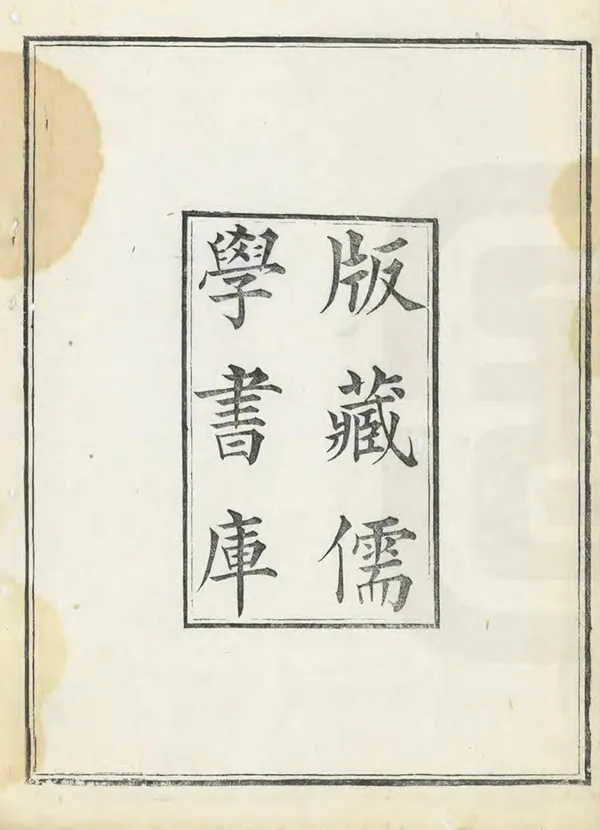 版藏儒
學書庫